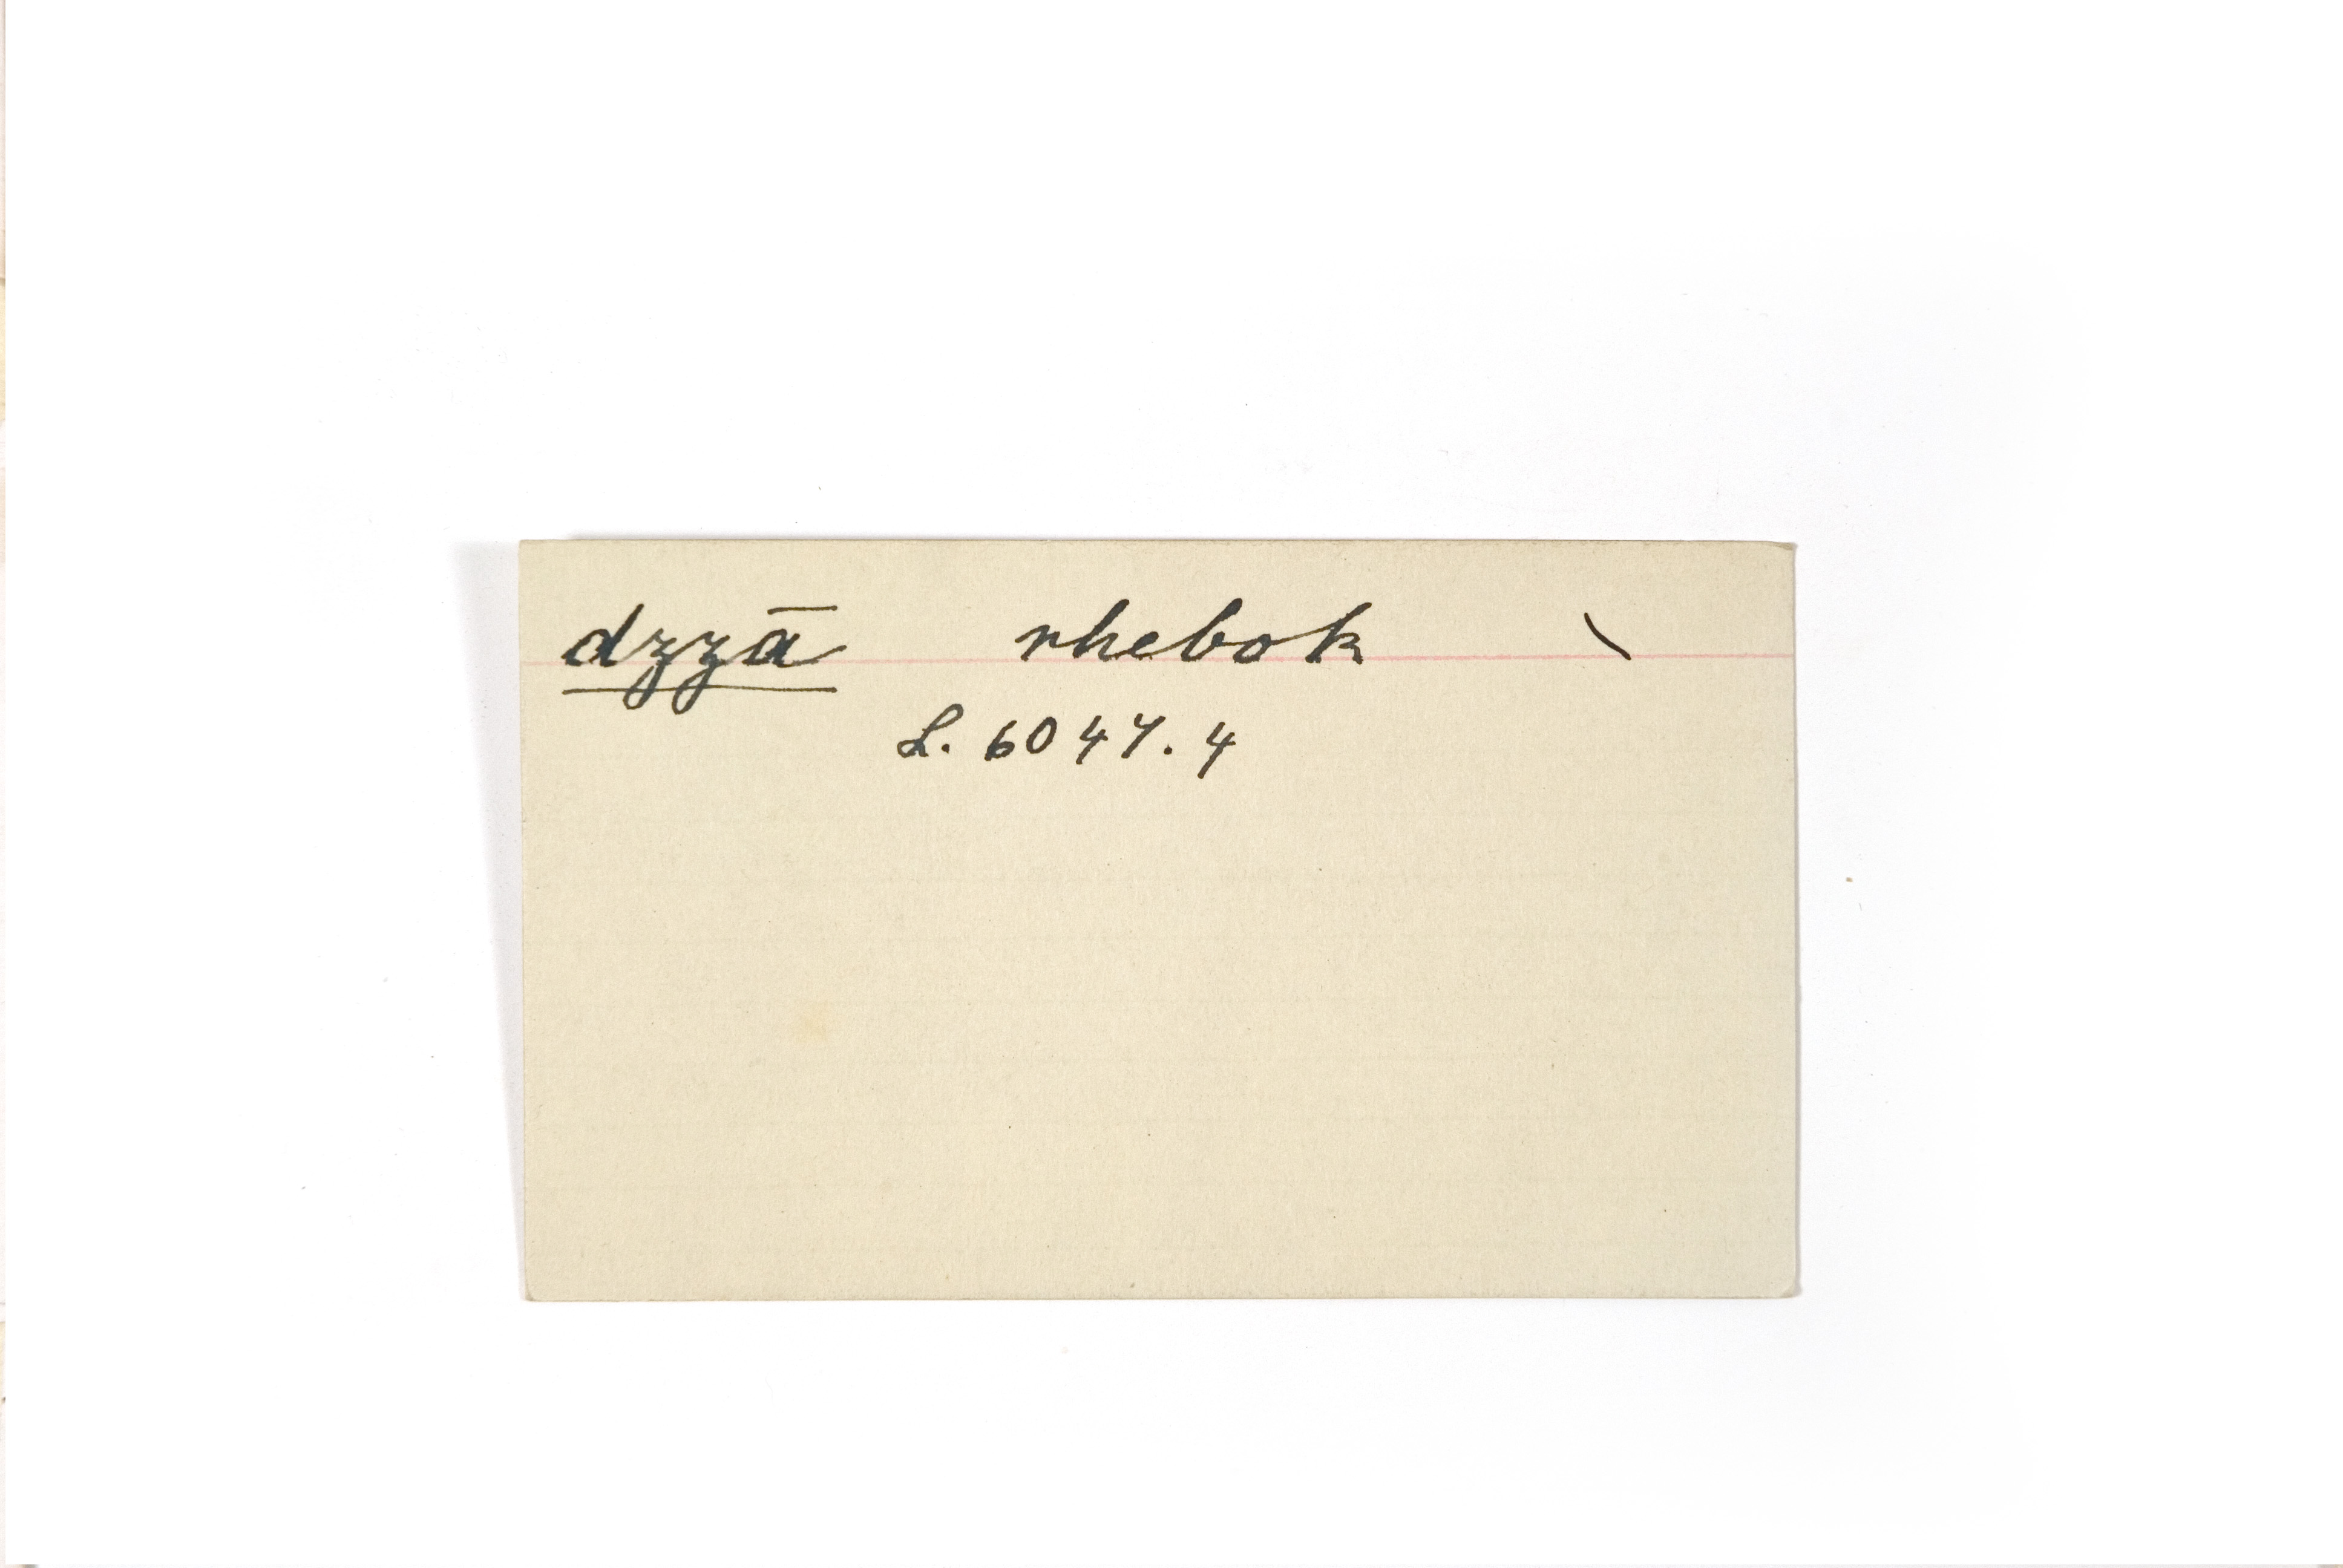 dzzā rhebok \
L. 6047. 4